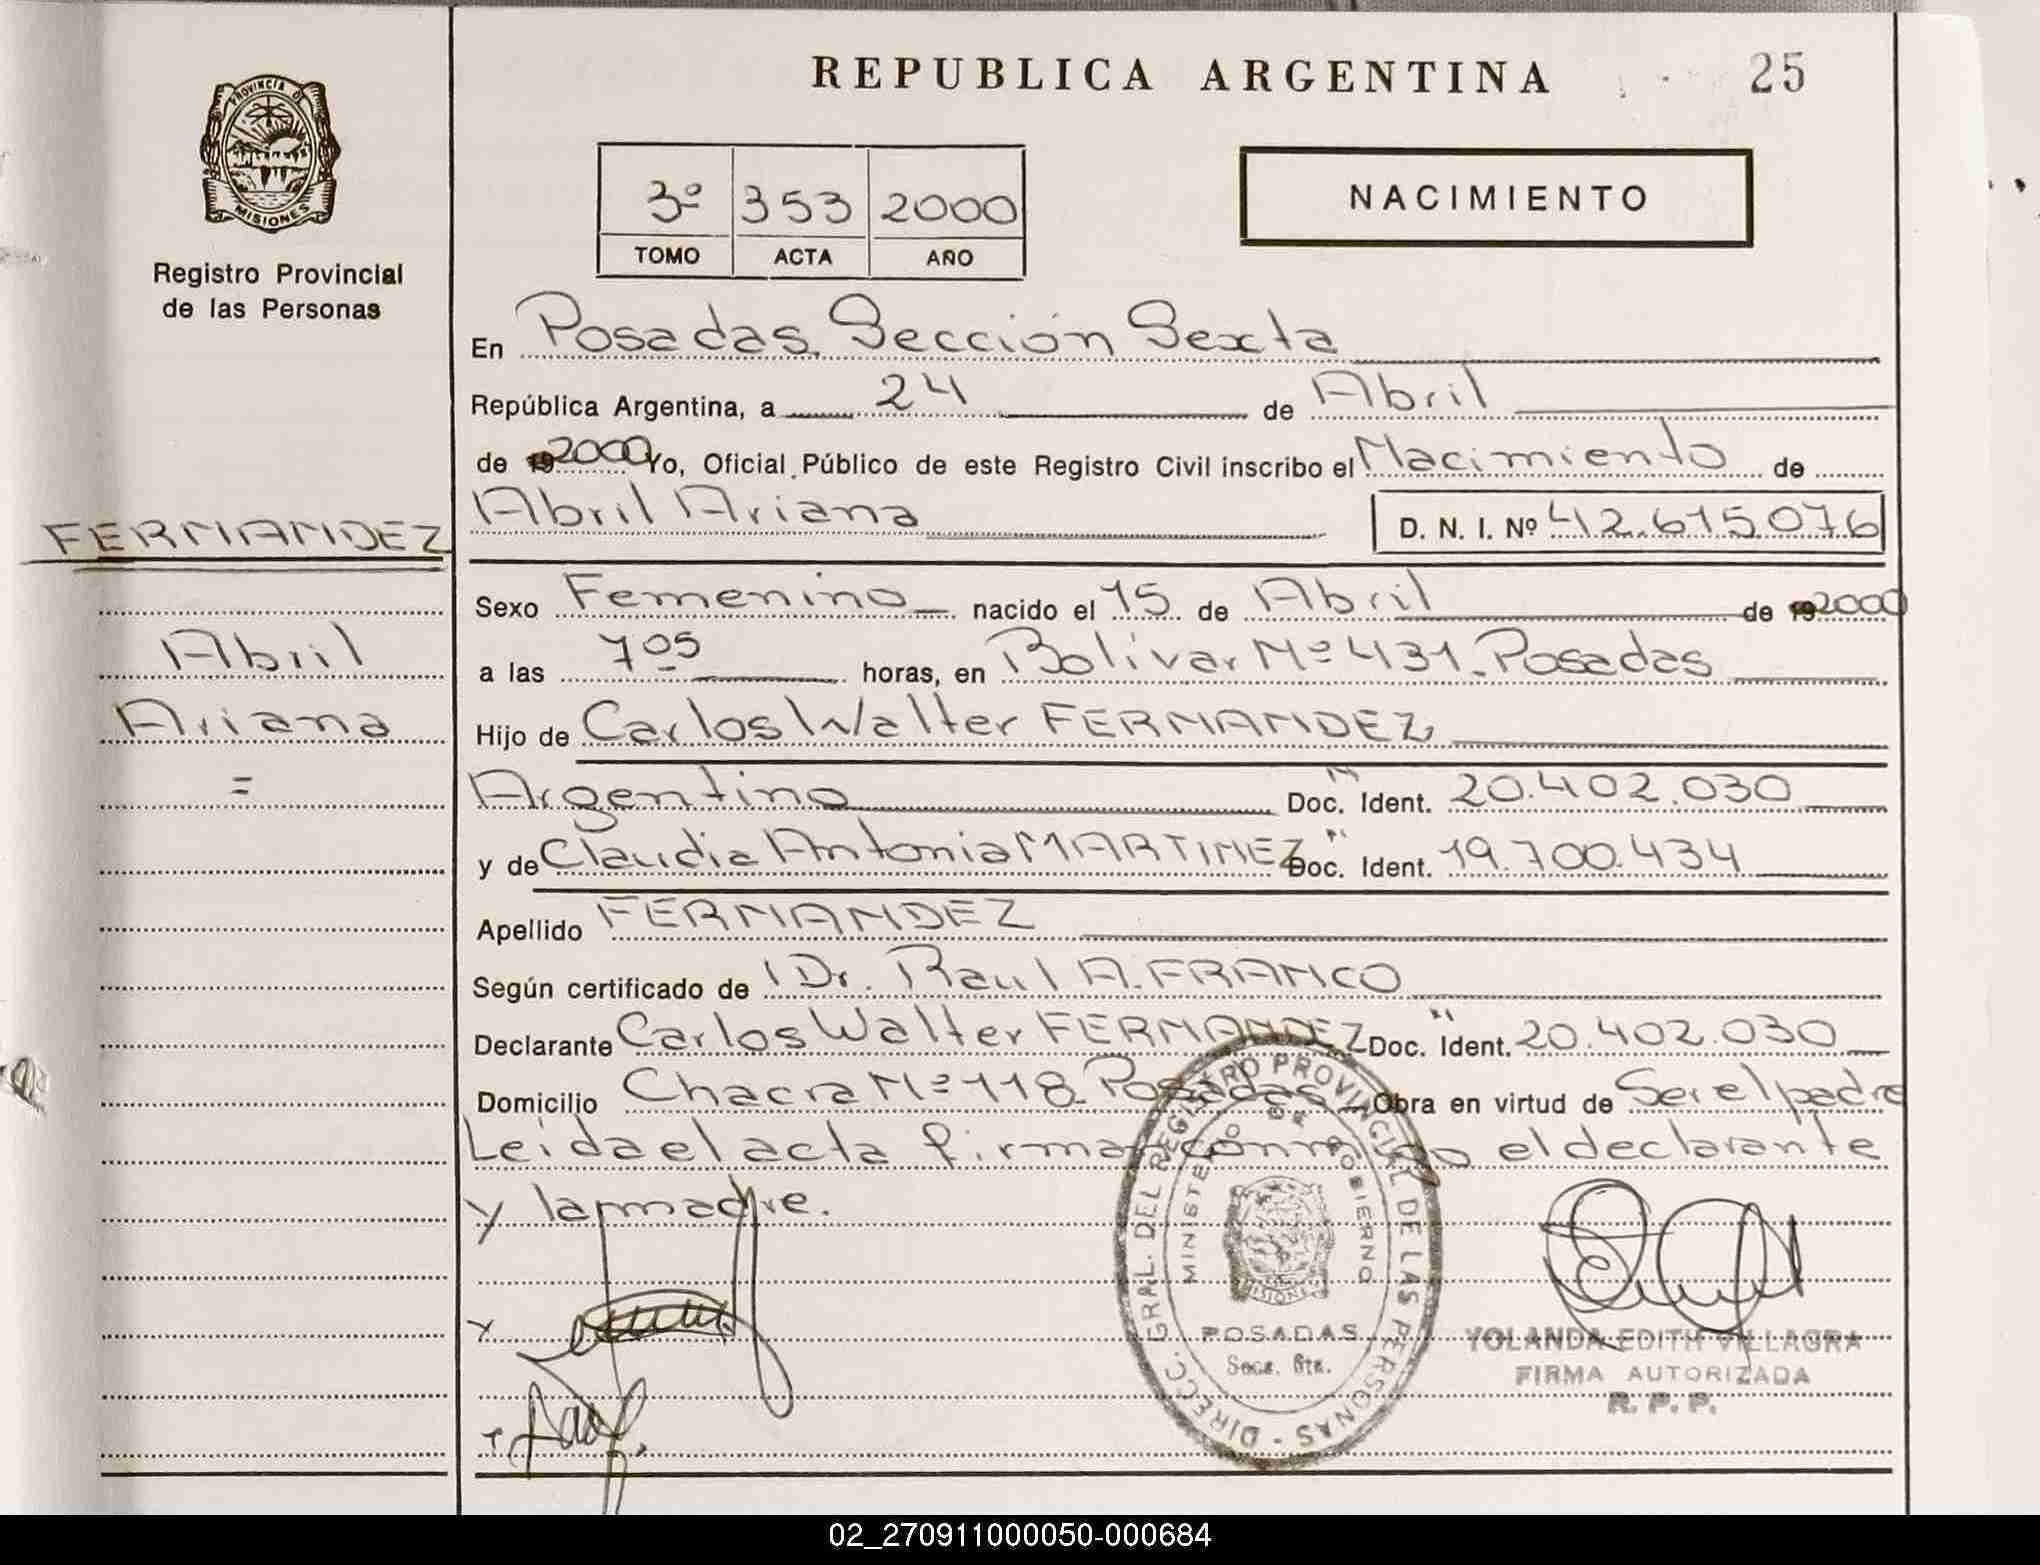 REPUBLICA ARGENTINA
25
PROVINCIA DE
MISIONES
Registro Provincial
de las Personas
3º 353 2000
TOMO ACTA AÑO
NACIMIENTO
En Posadas, Sección Sexta
República Argentina, a 24 de Abril
de 2000 Yo, Oficial Público de este Registro Civil inscribo el Nacimiento de
Abril Ariana D. N. I. Nº 42.615.076
FERNANDEZ
Abril
Ariana
=
Sexo Femenino nacido el 15 de Abril de 2000
a las 7 05 horas, en Bolívar Nº 431. Posadas
Hijo de Carlos Walter FERNANDEZ,
Argentino Doc. Ident. 20.402.030
y de Claudia Antonia MARTINEZ Doc. Ident. 19.700.434
Apellido FERNANDEZ
Según certificado de Dr. Raul A. FRANCO
Declarante Carlos Walter FERNANDEZ Doc. Ident. 20.402.030
Domicilio Chacra Nº 118 Posadas Obra en virtud de Ser el padre
Leida el acta firman conmigo el declarante
y la madre.
DIRECC. GRAL. DEL REGISTRO PROVINCIAL DE LAS PERSONAS -
MINISTERIO DE GOBIERNO
MISIONES
POSADAS
Secc. 6ta.
YOLANDA EDITH VILLAGRA
FIRMA AUTORIZADA
R. P. P.
02_270911000050-000684